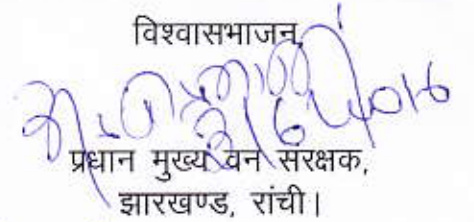 विश्वासभाजन,
प्रधान मुख्य वन संरक्षक,
झारखण्ड, रांची।